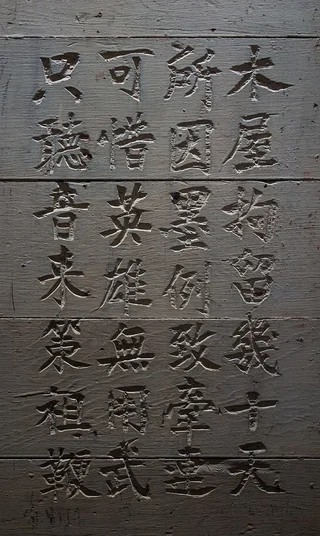 木屋拘留幾十天
所因墨例致牽連
可惜英雄無用武
只聽音來策祖鞭